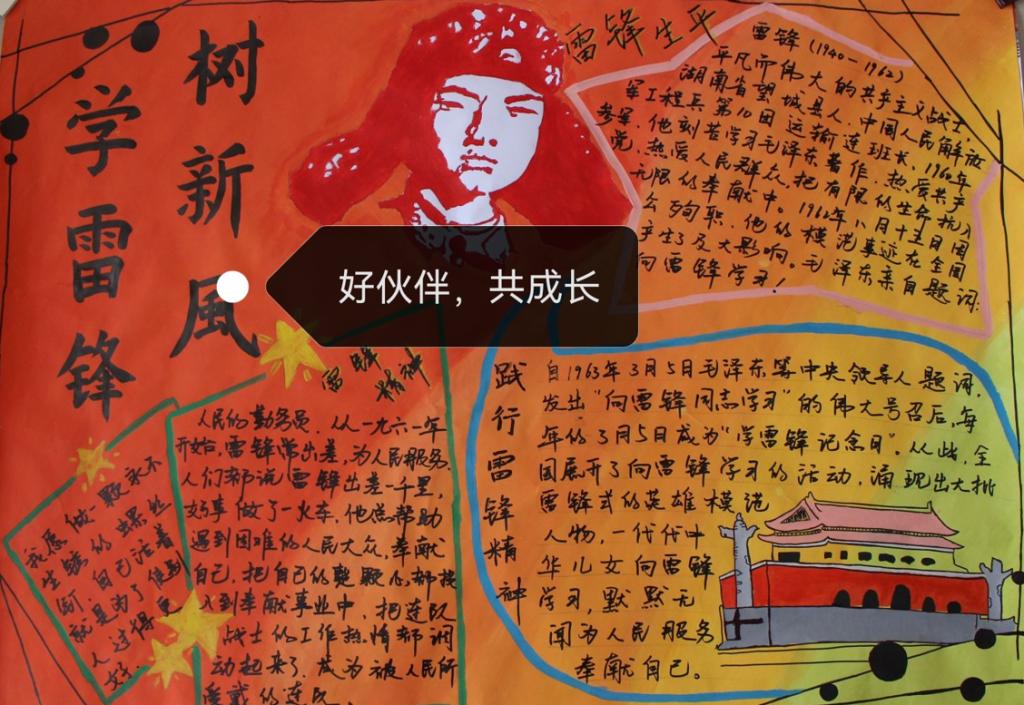 学雷锋
树新風
雷锋生平
雷锋(1940-1962)
平凡而伟大的共产主义战士,
湖南省望城县人,中国人民解放
军工程兵第10团运输连班长,1960年
参军,他刻苦学习毛泽东著作,热爱共产
党,热爱人民群众,把有限的生命投入
无限的奉献中。1962年八月十五日因
公殉职,他的模范事迹在全国
产生了及大影响。毛泽东亲自题词:
向雷锋学习!
好伙伴,共成长
雷锋
精神
人民的勤务员.从一九六一年
开始,雷锋常出差,为人民服务.
人们都说雷锋出差一千里,
好事做了一火车,他总帮助
遇到困难的人民大众,奉献
自己,把自己的整颗心都投
入到奉献事业中,把连队
战士的工作热情都调
动起来了,成为被人民所
爱戴的连队
我愿做一颗永不
生锈的螺丝
钉,自己活着
就是为了使别
人过得更
好.
践行雷锋精神
自1963年3月5日毛泽东等中央领导人题词,
发出“向雷锋同志学习”的伟大号召后,每
年的3月5日成为“学雷锋记念日”.从此,全
国展开了向雷锋学习的活动,涌现出大批
雷锋式的英雄模范
人物,一代代中
华儿女向雷锋
学习,默默无
闻为人民服务
奉献自己。